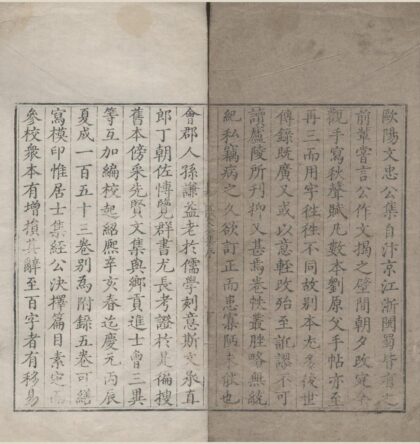 歐陽文忠公集自汴京江浙閩蜀皆有之
前輩嘗言公作文揭之壁間朝夕改定今
觀手寫秋聲賦凡數本劉原父手帖亦至
再三而用字徃徃不同故別本尤多後世
傳錄既廣又或以意輕改殆至訛謬不可
讀廬陵所刊抑又甚焉卷帙叢脞略無統
紀私竊病之久欲訂正而患寡陋未能也
會郡人孫謙益老於儒學刻意斯文承直
郎丁朝佐博覽群書尤長考證於是徧搜
舊本傍采先賢文集與鄉貢進士曾三異
等互加編校起紹熙辛亥春迄慶元丙辰
夏成一百五十三卷別為附錄五卷可繕
寫模印惟居士集經公決擇篇目素定而
參校衆本有增損其辭至百字者有移易